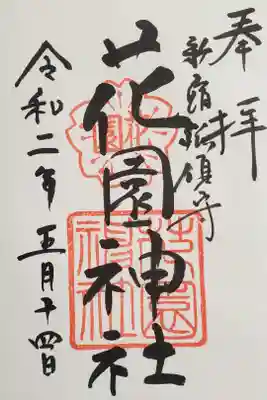 奉拝
新宿総鎮守
花園神社
令和二年五月十四日